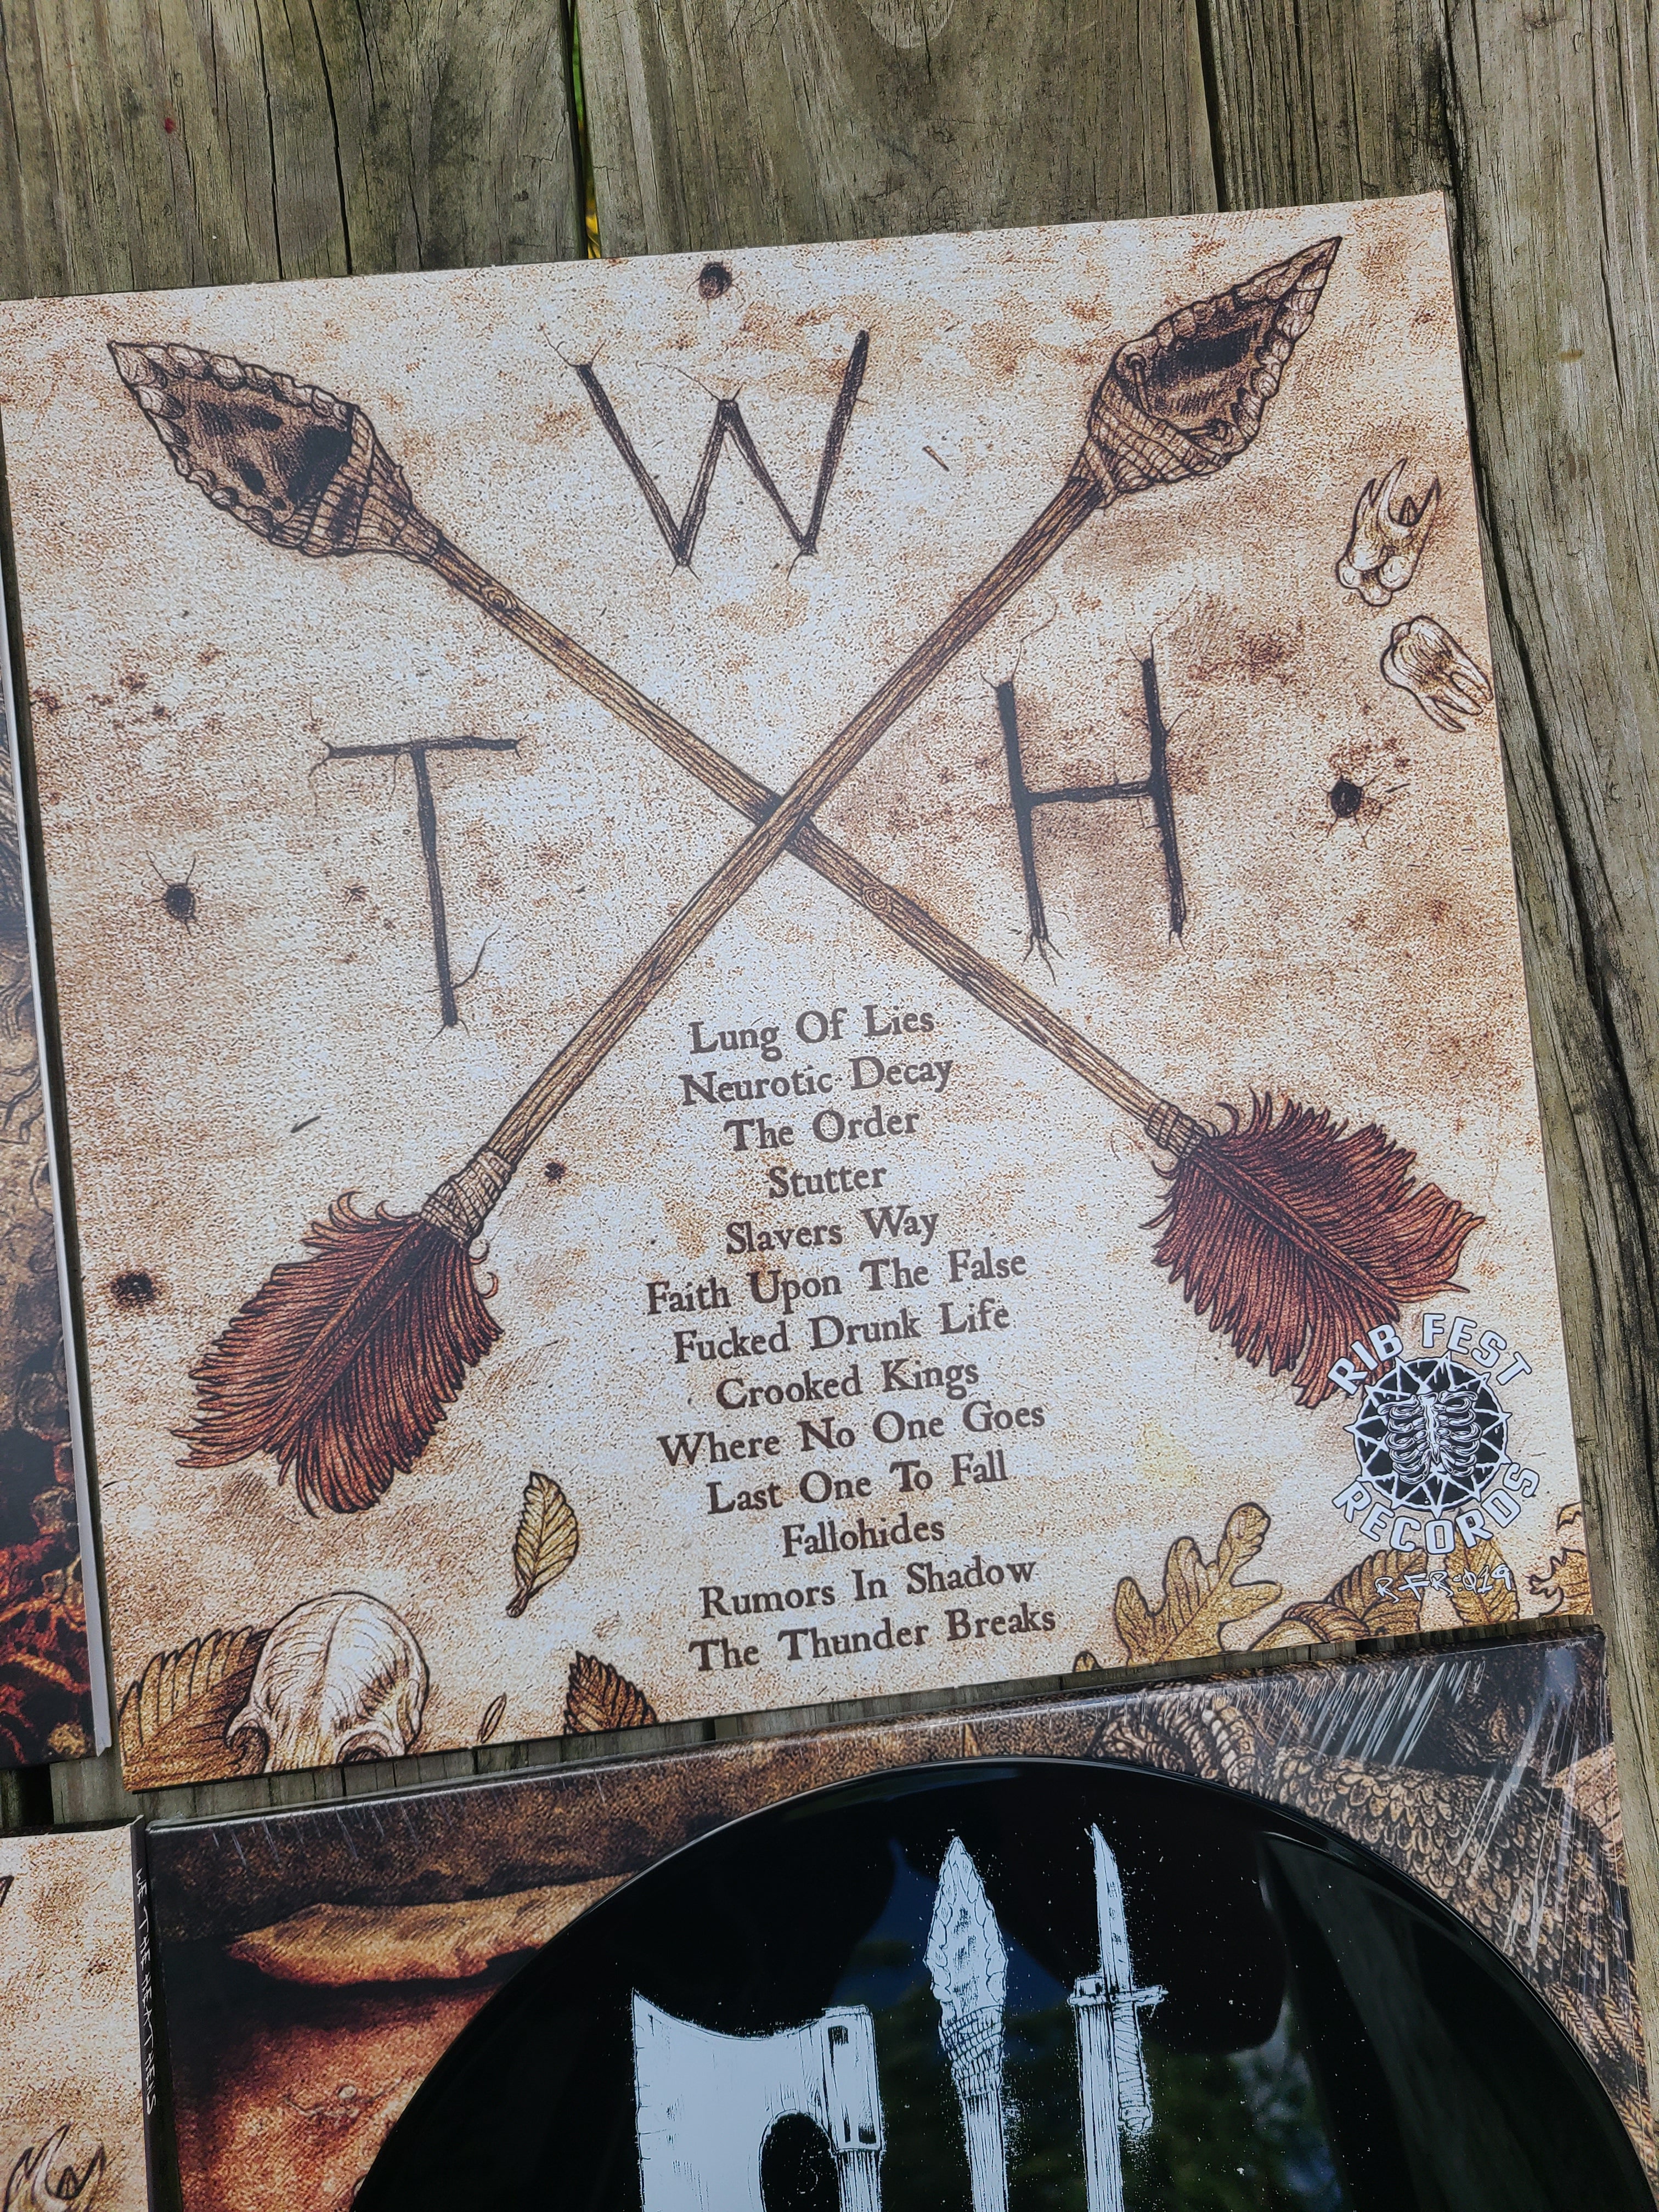 W
T H
Lung Of Lies
Neurotic Decay
The Order
Stutter
Slavers Way
Faith Upon The False
Fucked Drunk Life
Crooked Kings
Where No One Goes
Last One To Fall
Fallohides
Rumors In Shadow
The Thunder Breaks
RIB FEST
RECORDS
RFR-019
WE THE HEATHENS